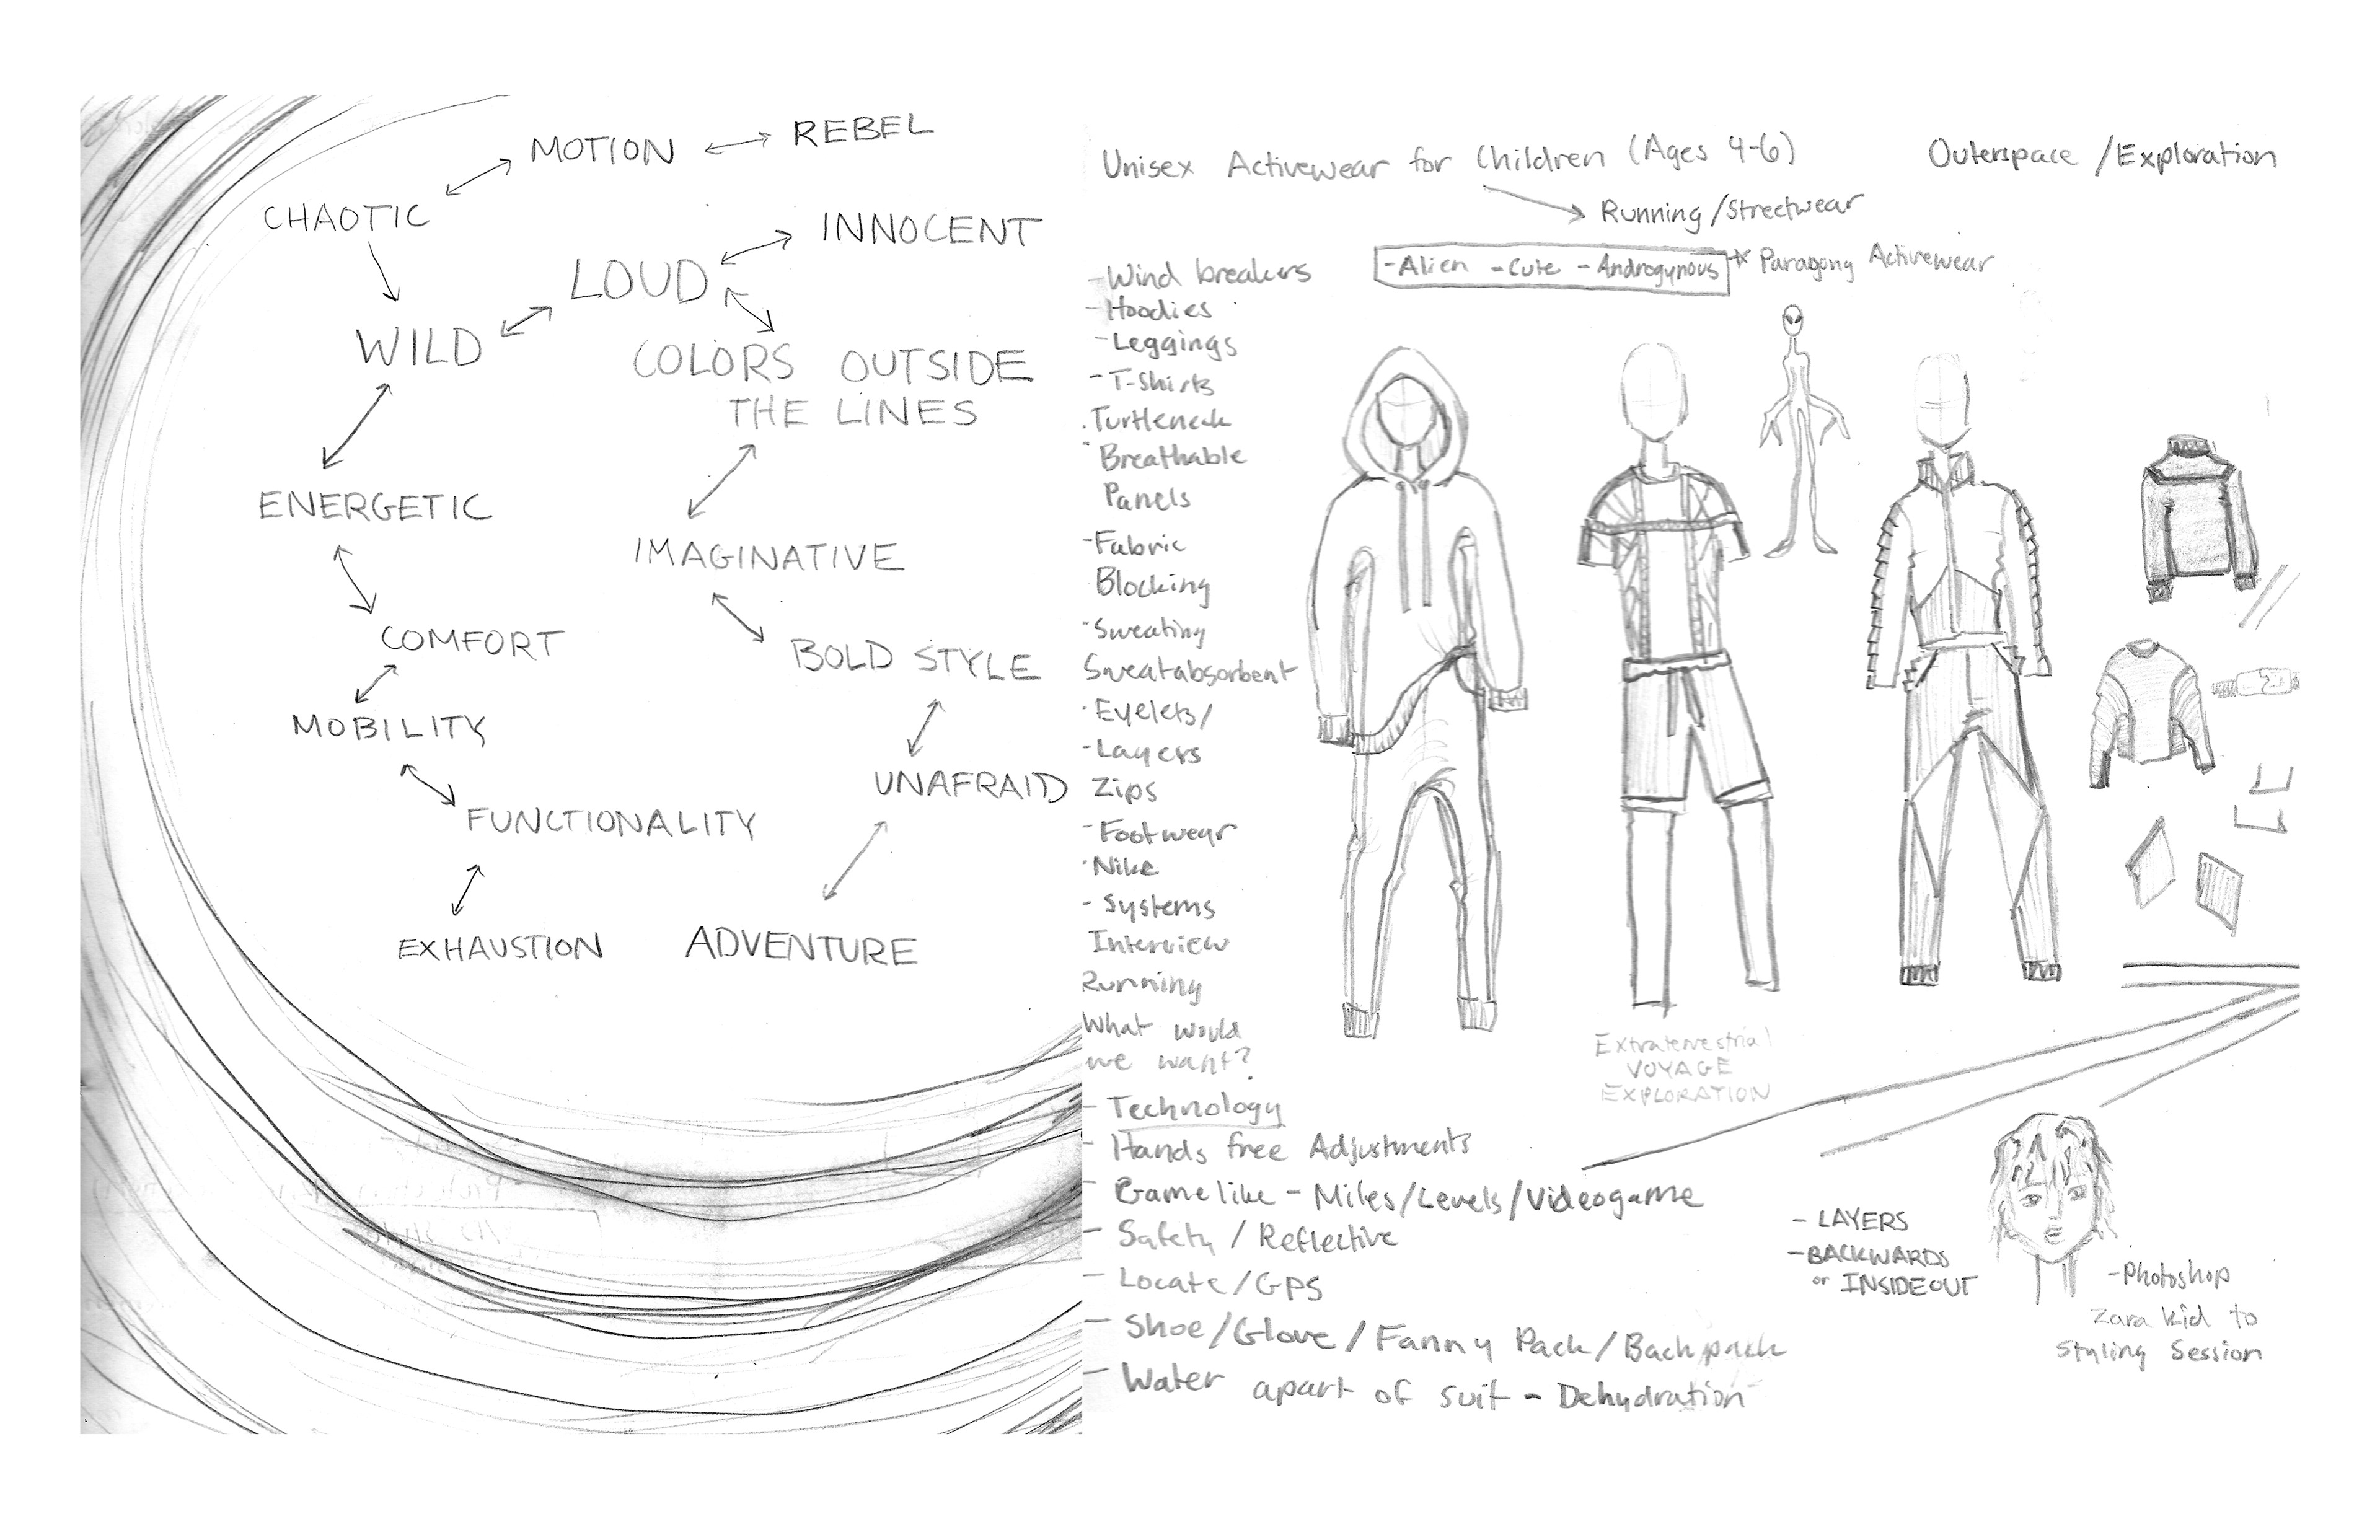 MOTION ↔ REBEL
CHAOTIC
INNOCENT
LOUD
WILD
COLORS OUTSIDE
THE LINES
ENERGETIC
IMAGINATIVE
COMFORT
BOLD STYLE
MOBILITY
UNAFRAID
FUNCTIONALITY
EXHAUSTION
ADVENTURE
Unisex Activewear for Children (Ages 4-6)
Outerspace / Exploration
Running / Streetwear
-Alien -Cute -Androgynous
* Paragony Activewear
-Wind breakers
-Hoodies
-Leggings
-T-Shirts
.Turtleneck
-Breathable
Panels
-Fabric
Blocking
-Sweating
Sweatabsorbent
-Eyelets/
-Layers
Zips
-Footwear
-Nike
-Systems
Interview
Running
What would
we want?
-Technology
-Hands free Adjustments
-Gamelike - Miles/Levels/Videogame
-Safety / Reflective
-Locate/GPS
-Shoe/Glove/Fanny Pack/Backpack
-Water apart of suit - Dehydration
Extraterrestrial
VOYAGE
EXPLORATION
-LAYERS
-BACKWARDS
or INSIDEOUT
-Photoshop
Zara Kid to
Styling Session